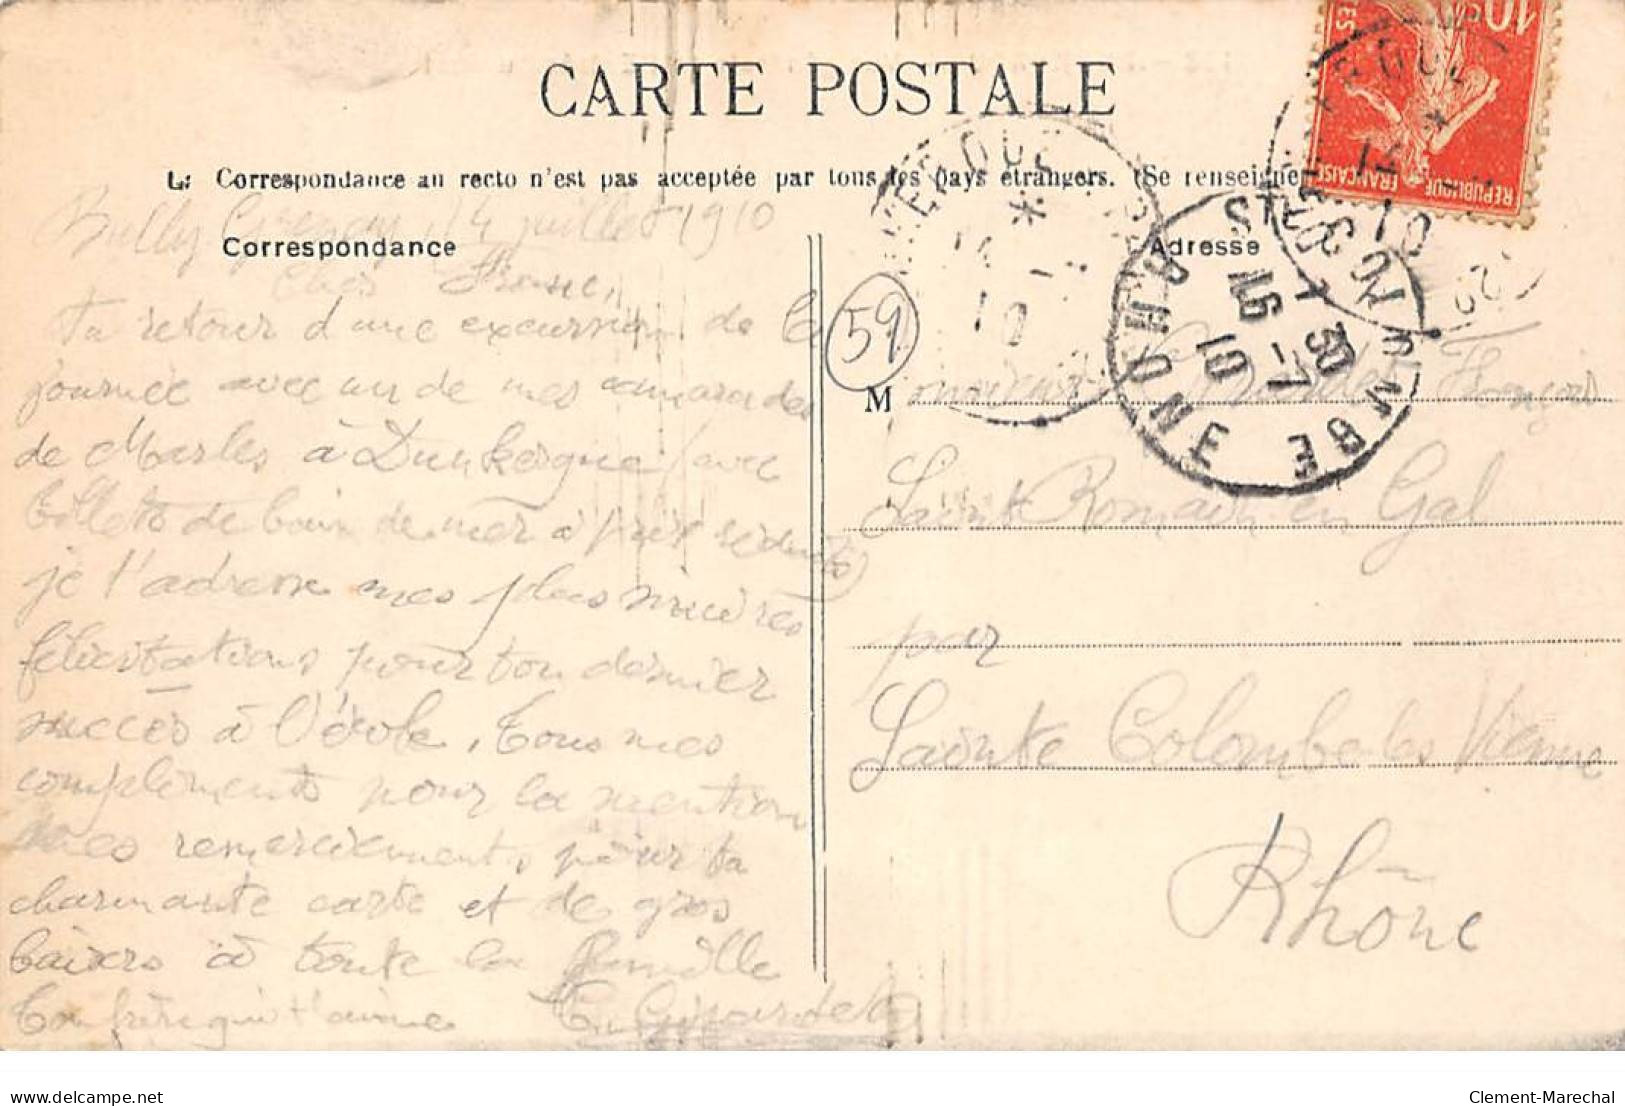 CARTE POSTALE
La Correspondance au recto n'est pas acceptée par tous les pays étrangers. (Se renseigne
Bully Grenay, 14 juillet 1910
Correspondance
Cher
retour d'une excursion de la
journée avec un de mes camarades
de Marles à Dunkerque (avec
billets de bain de mer à prix réduits)
je t'adresse mes plus sincères
félicitations pour ton dernier
succès à l'école. Tous mes
compliments pour la mention
mes remerciements pour ta
charmante carte et de gros
baisers à toute la famille
Ton frère qui t'aime Girardet
59
Adresse
Monsieur Girardet François
Saint Romain en Gal
par
Sainte Colombe les Vienne
Rhône
STE COLOMBE
RHONE
16 -7
10
DUNKERQUE
14 -7
10
10c
REPUBLIQUE FRANÇAISE
POSTES
delcampe.com
Clement-Marechal